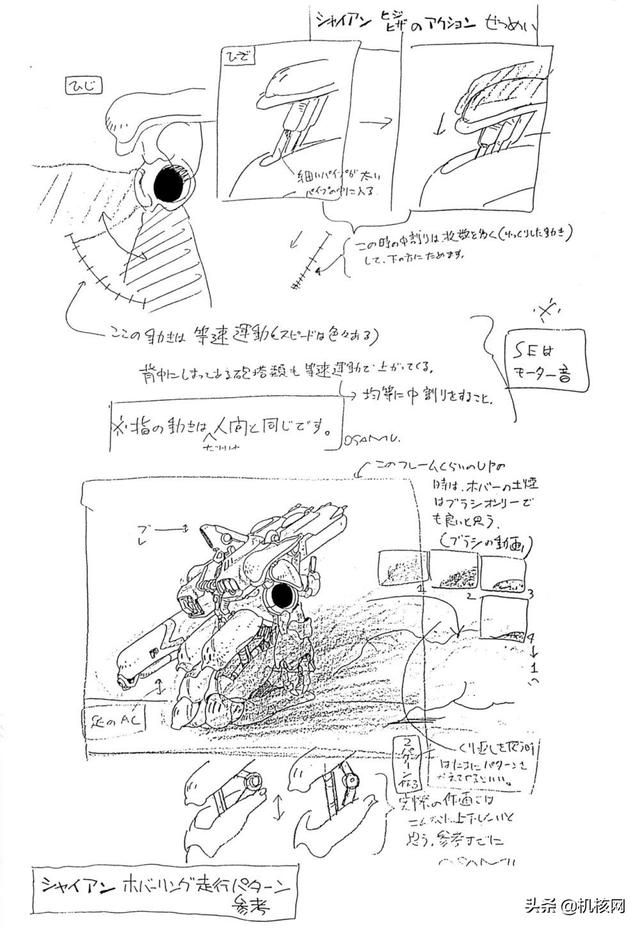 シャイアン ヒジ ヒザ のアクション せつめい
ひじ
ひざ
細いパイプが太い
パイプの中に入る
この時の中割りは枚数を多く(ゆっくりした動き)
して、下の方にためます。
ここの動きは等速運動(スピードは色々ある)
※
SEは
モーター音
背中にしまってある砲塔類も等速運動で上がってくる。
→均等に中割りをすること。
※指の動きは人間と同じです。
OSAMU.
このフレームくらいのUPの
時は、ホバーの土煙
はブラシオンリーで
も良いと思う。
(ブラシの動画)
ブレ
1
2
3
4
↓
1
へ
足のAC
くり返しを使う時
はたまにパターンを
かえてやるといい。
実際の作画では
こんなに上下しないと
思う。参考までに
OSAMU
シャイアン ホバーリング走行パターン
参考
头条 @机核网